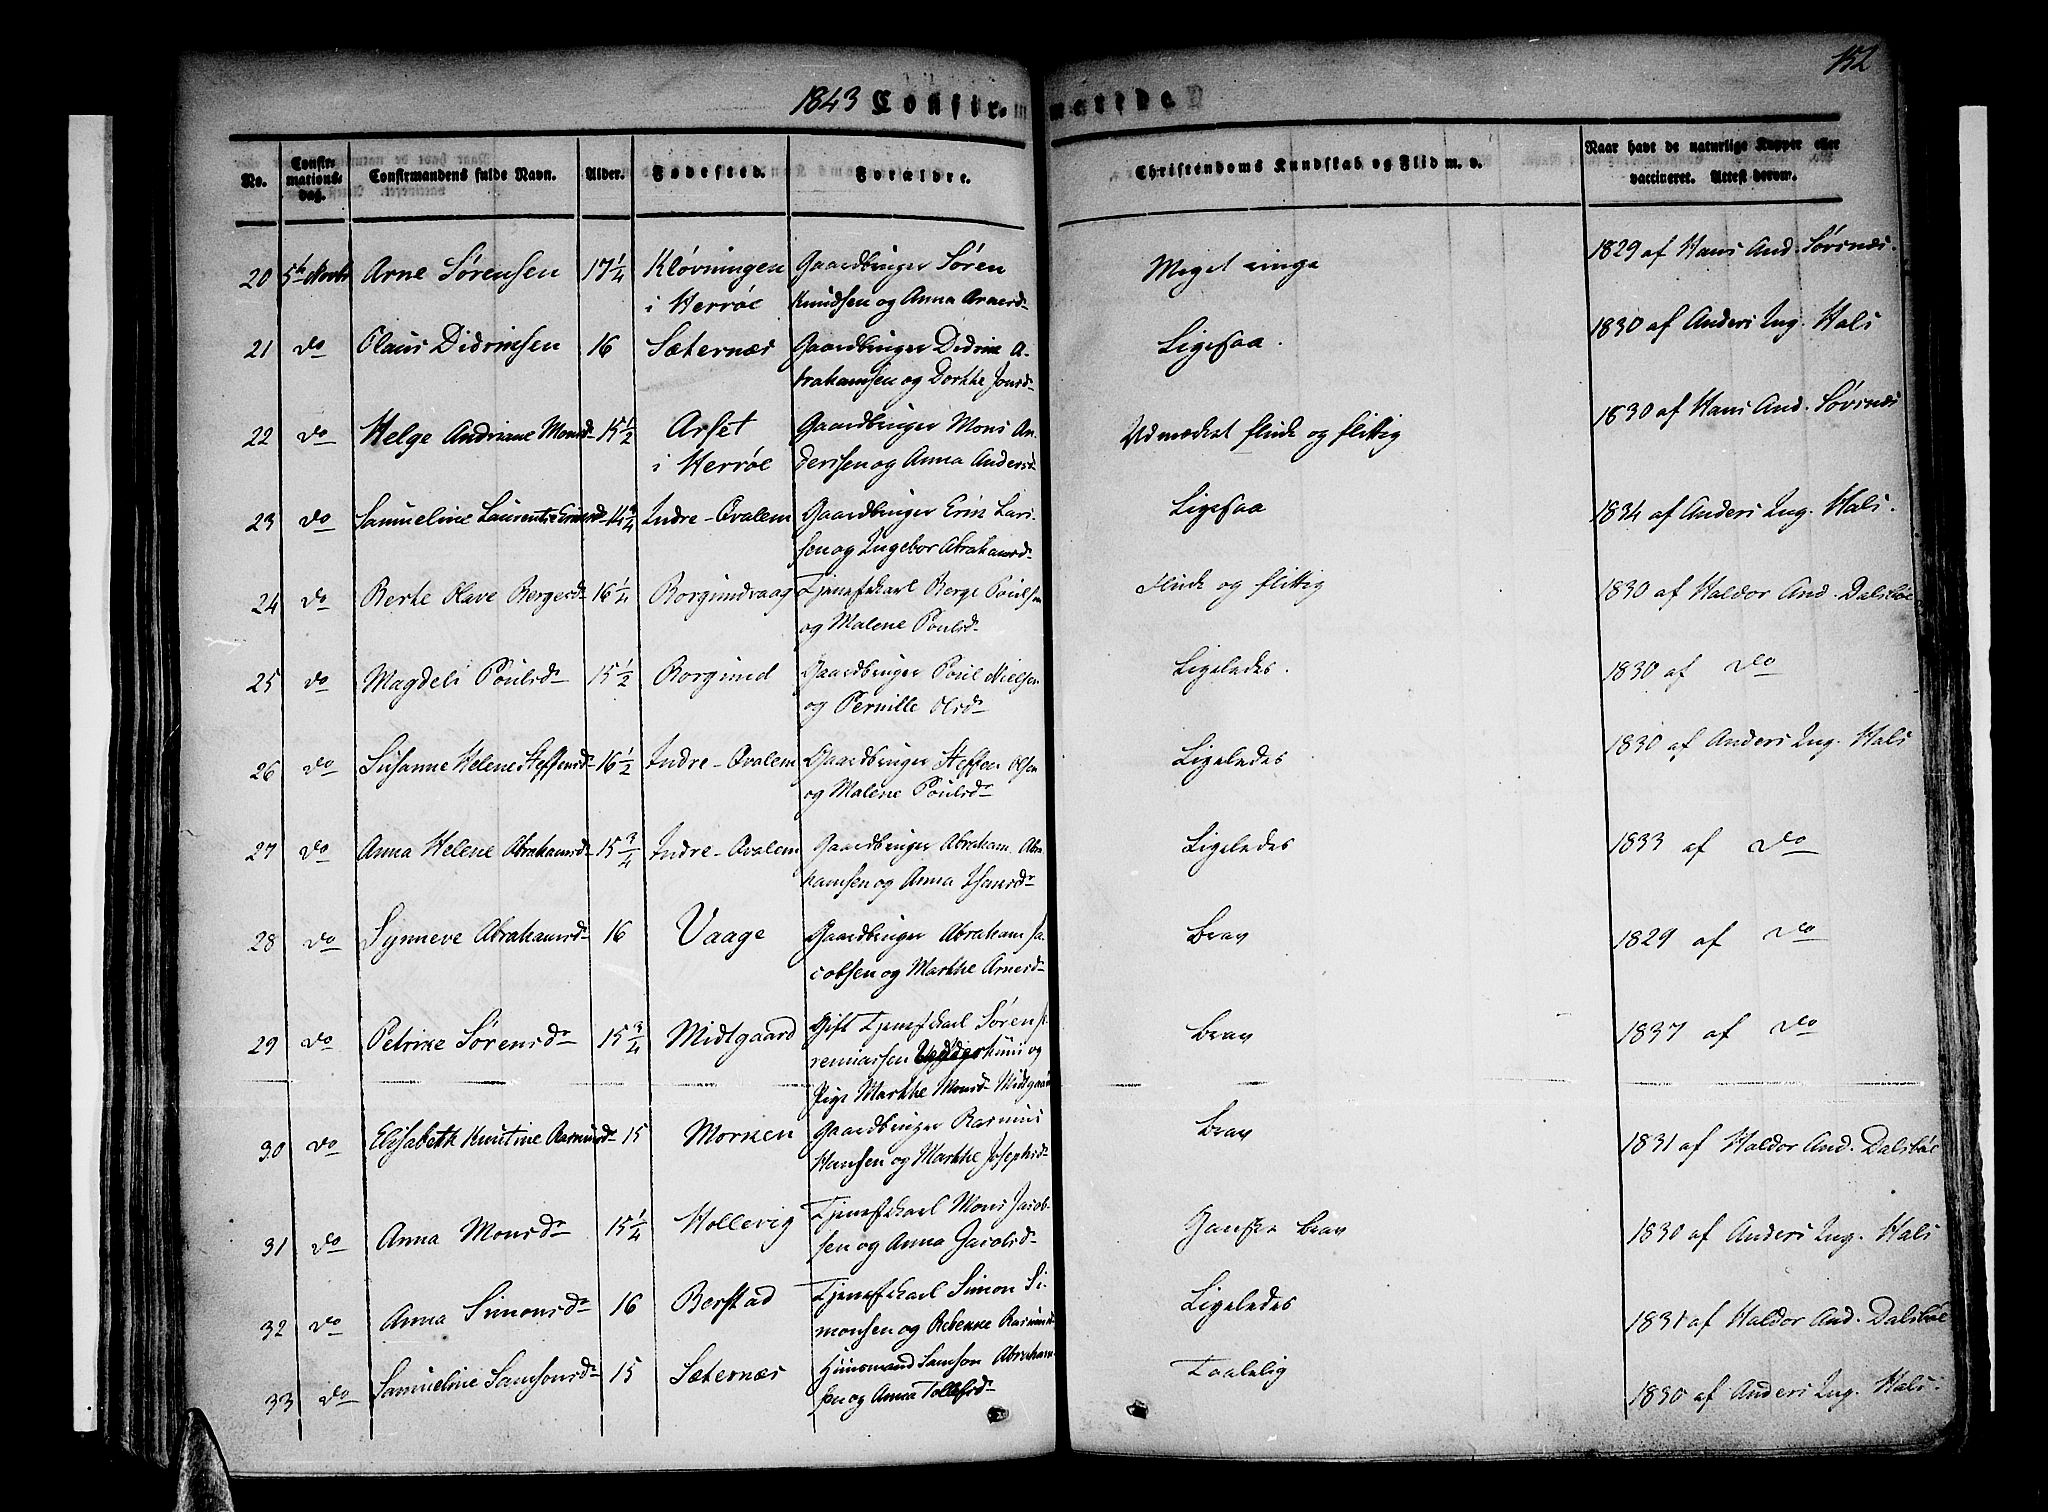 152
1843 Confirmerede
No.
Confirmationsdag.
Confirmandens fulde Navn.
Alder.
Fødested.
Forældre.
Christendoms Kundskab og Flid m. v.
Naar havt de naturlige Kopper eller vaccineret. Attest derom.
20 5te Novbr Arne Sørensen 17 1/4 Kløvningen i Herrøe Gaardbruger Søren Knudsen og Anna Arnesdr Meget ringe 1829 af Hans And. Sørsnæs.
21 do Olaus Didriksen 16 Sæternæs Gaardbruger Didrik Abrahamsen og Dorthe Jonsdr Ligesaa. 1830 af Anders Ing. Hals
22 do Helge Andriane Monsdr 15 1/2 Arset i Herrøe Gaardbruger Mons Andersen og Anna Andersdr Udmærket flink og flittig 1830 af Hans And. Sørsnæs
23 do Samueline Laurentse Eriksdr 14 3/4 Indre-Qvalem Gaardbruger Erik Larsen og Ingebor Abrahamsdr Ligesaa 1834 af Anders Ing. Hals.
24 do Berte Olave Bergesdr 16 1/4 Borgundvaag Tjenestekarl Berge Poulsen og Malene Poulsdr Flink og flittig 1830 af Haldor And. Dalsbøe
25 do Magdeli Poulsdr 15 1/2 Borgund Gaardbruger Poul Nielsen og Pernille Olsdr Ligeledes. 1830 af do
26 do Susanne Helene Steffensdr 16 1/2 Indre-Qvalem Gaardbruger Steffen Olsen og Malene Poulsdr Ligeledes 1830 af Anders Ing. Hals
27 do Anna Helene Abrahamsdr 15 3/4 Indre-Qvalem Gaardbruger Abraham Abrahamsen og Anna Isaksdr Ligeledes 1833 af do
28 do Synneve Abrahamsdr 16 Vaage Gaardbruger Abraham Jacobsen og Marthe Arnesdr Brav 1829 af do
29 do Petrine Sørensdr 15 3/4 Midtgaard Gift Tjenestekarl Søren Jeremiassen og Pige Marthe Monsdr Midtgaard Brav 1837 af do
30 do Elisabeth Knutine Rasmusdr 15 Morken Gaardbruger Rasmus Hansen og Marthe Josephsdr Brav 1831 af Haldor And. Dalsbøe
31 do Anna Monsdr 15 1/4 Hollevig Tjenestekarl Mons Jacobsen og Anna Jacobsdr Ganske brav 1830 af Anders Ing. Hals
32 do Anna Simonsdr 16 Berstad Tjenestekarl Simon Simonsen og Rebekke Rasmusdr Ligeledes 1831 af Haldor And. Dalsbøe
33 do Samueline Samsonsdr 15 Sæternæs Huusmand Samson Abrahamsen og Anna Tollefsdr Taalelig 1830 af Anders Ing. Hals.